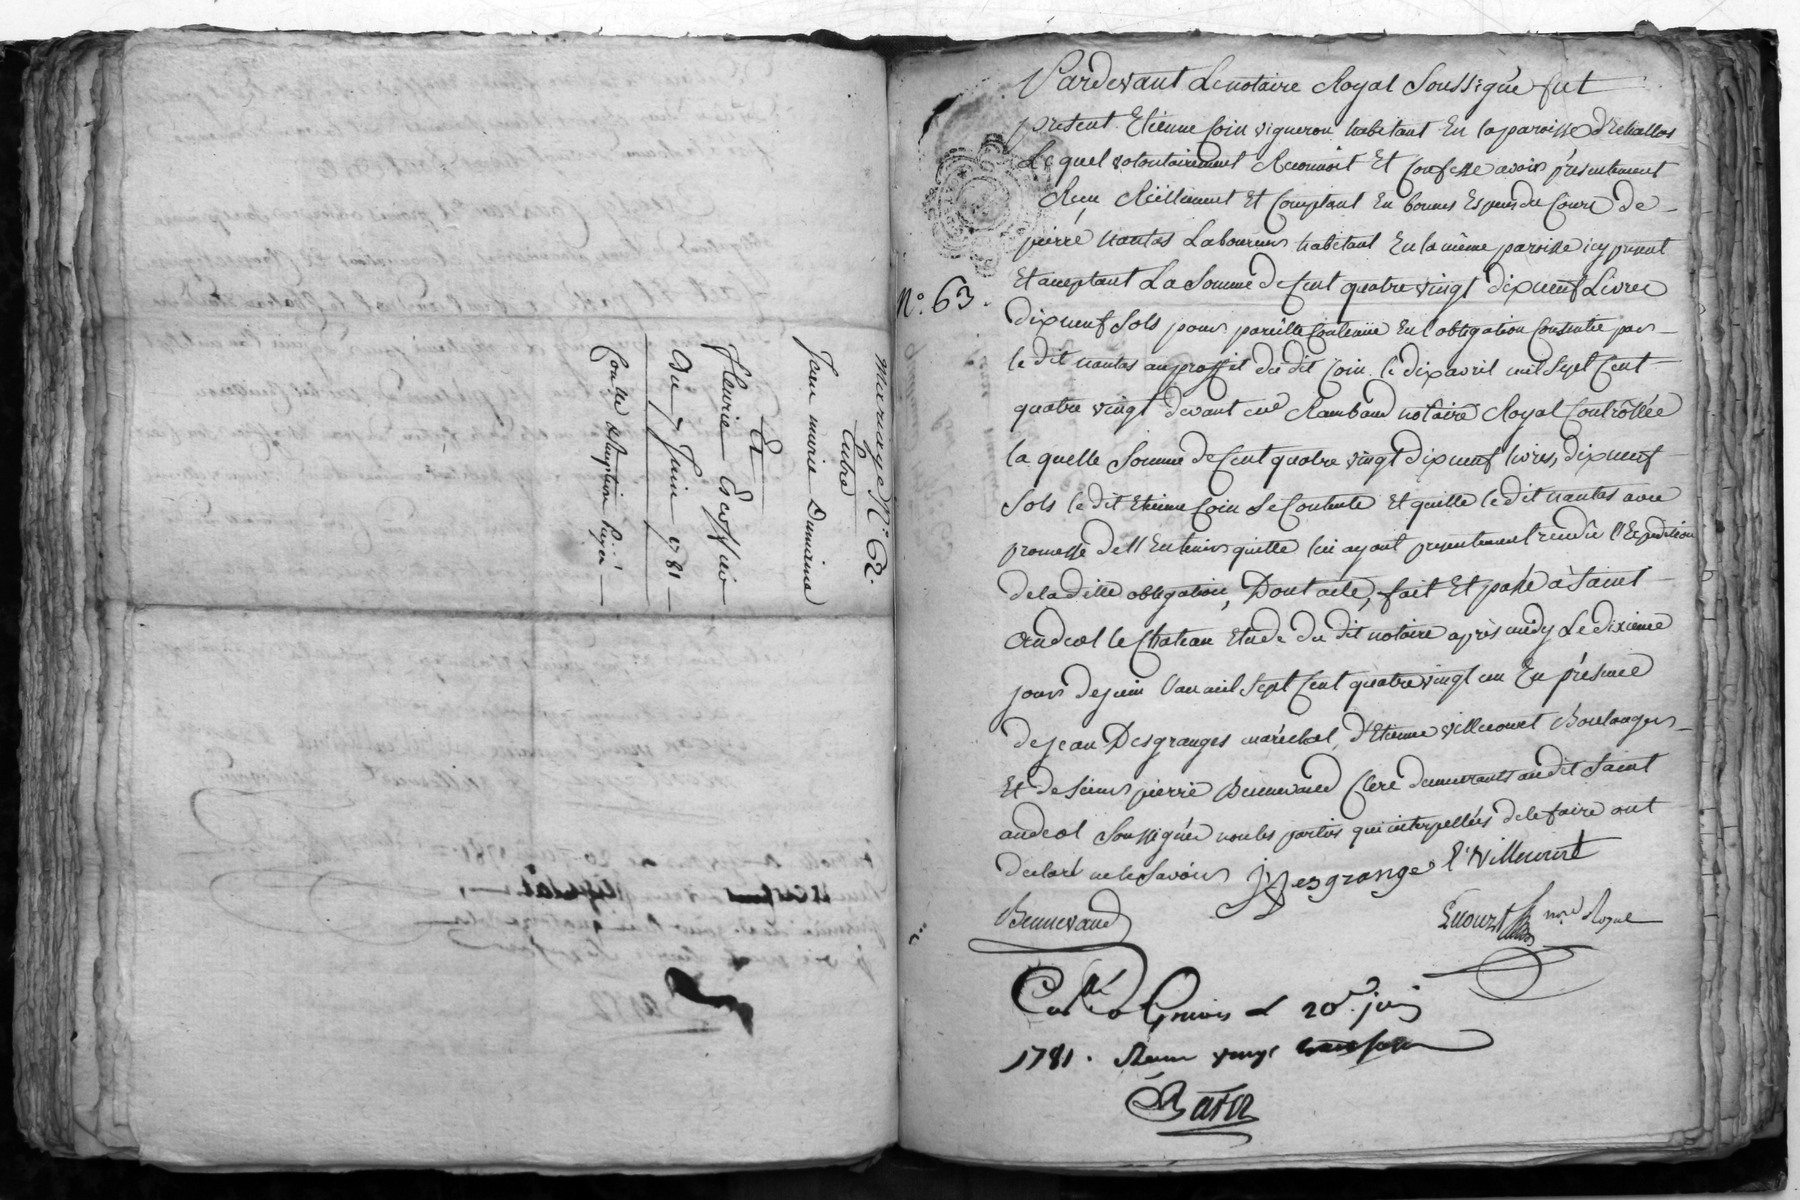 Mariage N.° 62.
Entre
Jean marie Dumaine
Et
Fleurie Escoffier
Du 7 Juin 1781
N.° 63.
Pardevant Le notaire Royal Soussigné fut
présent Etienne Coin vigneron habitant En la paroisse d'Echallas
Lequel volontairement Reconnoit Et Confesse avoir présentement
Reçu Réellement Et Comptant En bonnes Especes du Cours De
pierre nantas Laboureur habitant En la même paroisse icy present
Et acceptant La Somme de Cent quatre vingt dixneuf Livres
dixneuf Sols pour pareille Contenüe En l'obligation Consentie par
le dit nantas au proffit du dit Coin le dix avril mil Sept Cent
quatre vingt devant me Rambaud notaire Royal Controllée
la quelle Somme de Cent quatre vingt dixneuf livres, dixneuf
Sols le dit Etienne Coin Se Contente Et quitte le dit nantas avec
promesse de l'En tenir quitte lui ayant presentement rendu l'Expedition
de la ditte obligation, Dont acte, fait Et passé à Saint
Andeol le Chateau Etude du dit notaire après midy Le dixieme
jour de juin l'an mil Sept Cent quatre vingt un En présence
de jean Desgranges maréchal, d'Etienne villecourt Boulanger
Et de Sieur pierre Bennevaud Clerc demeurants au dit Saint
andeol Soussignés non les parties qui interpellées de le faire ont
declaré ne le Savoir J Desgrange E. Villecourt
Bennevaud
nre Royal
Con.lé à Givors le 20 juin
1781. Reçu vingt